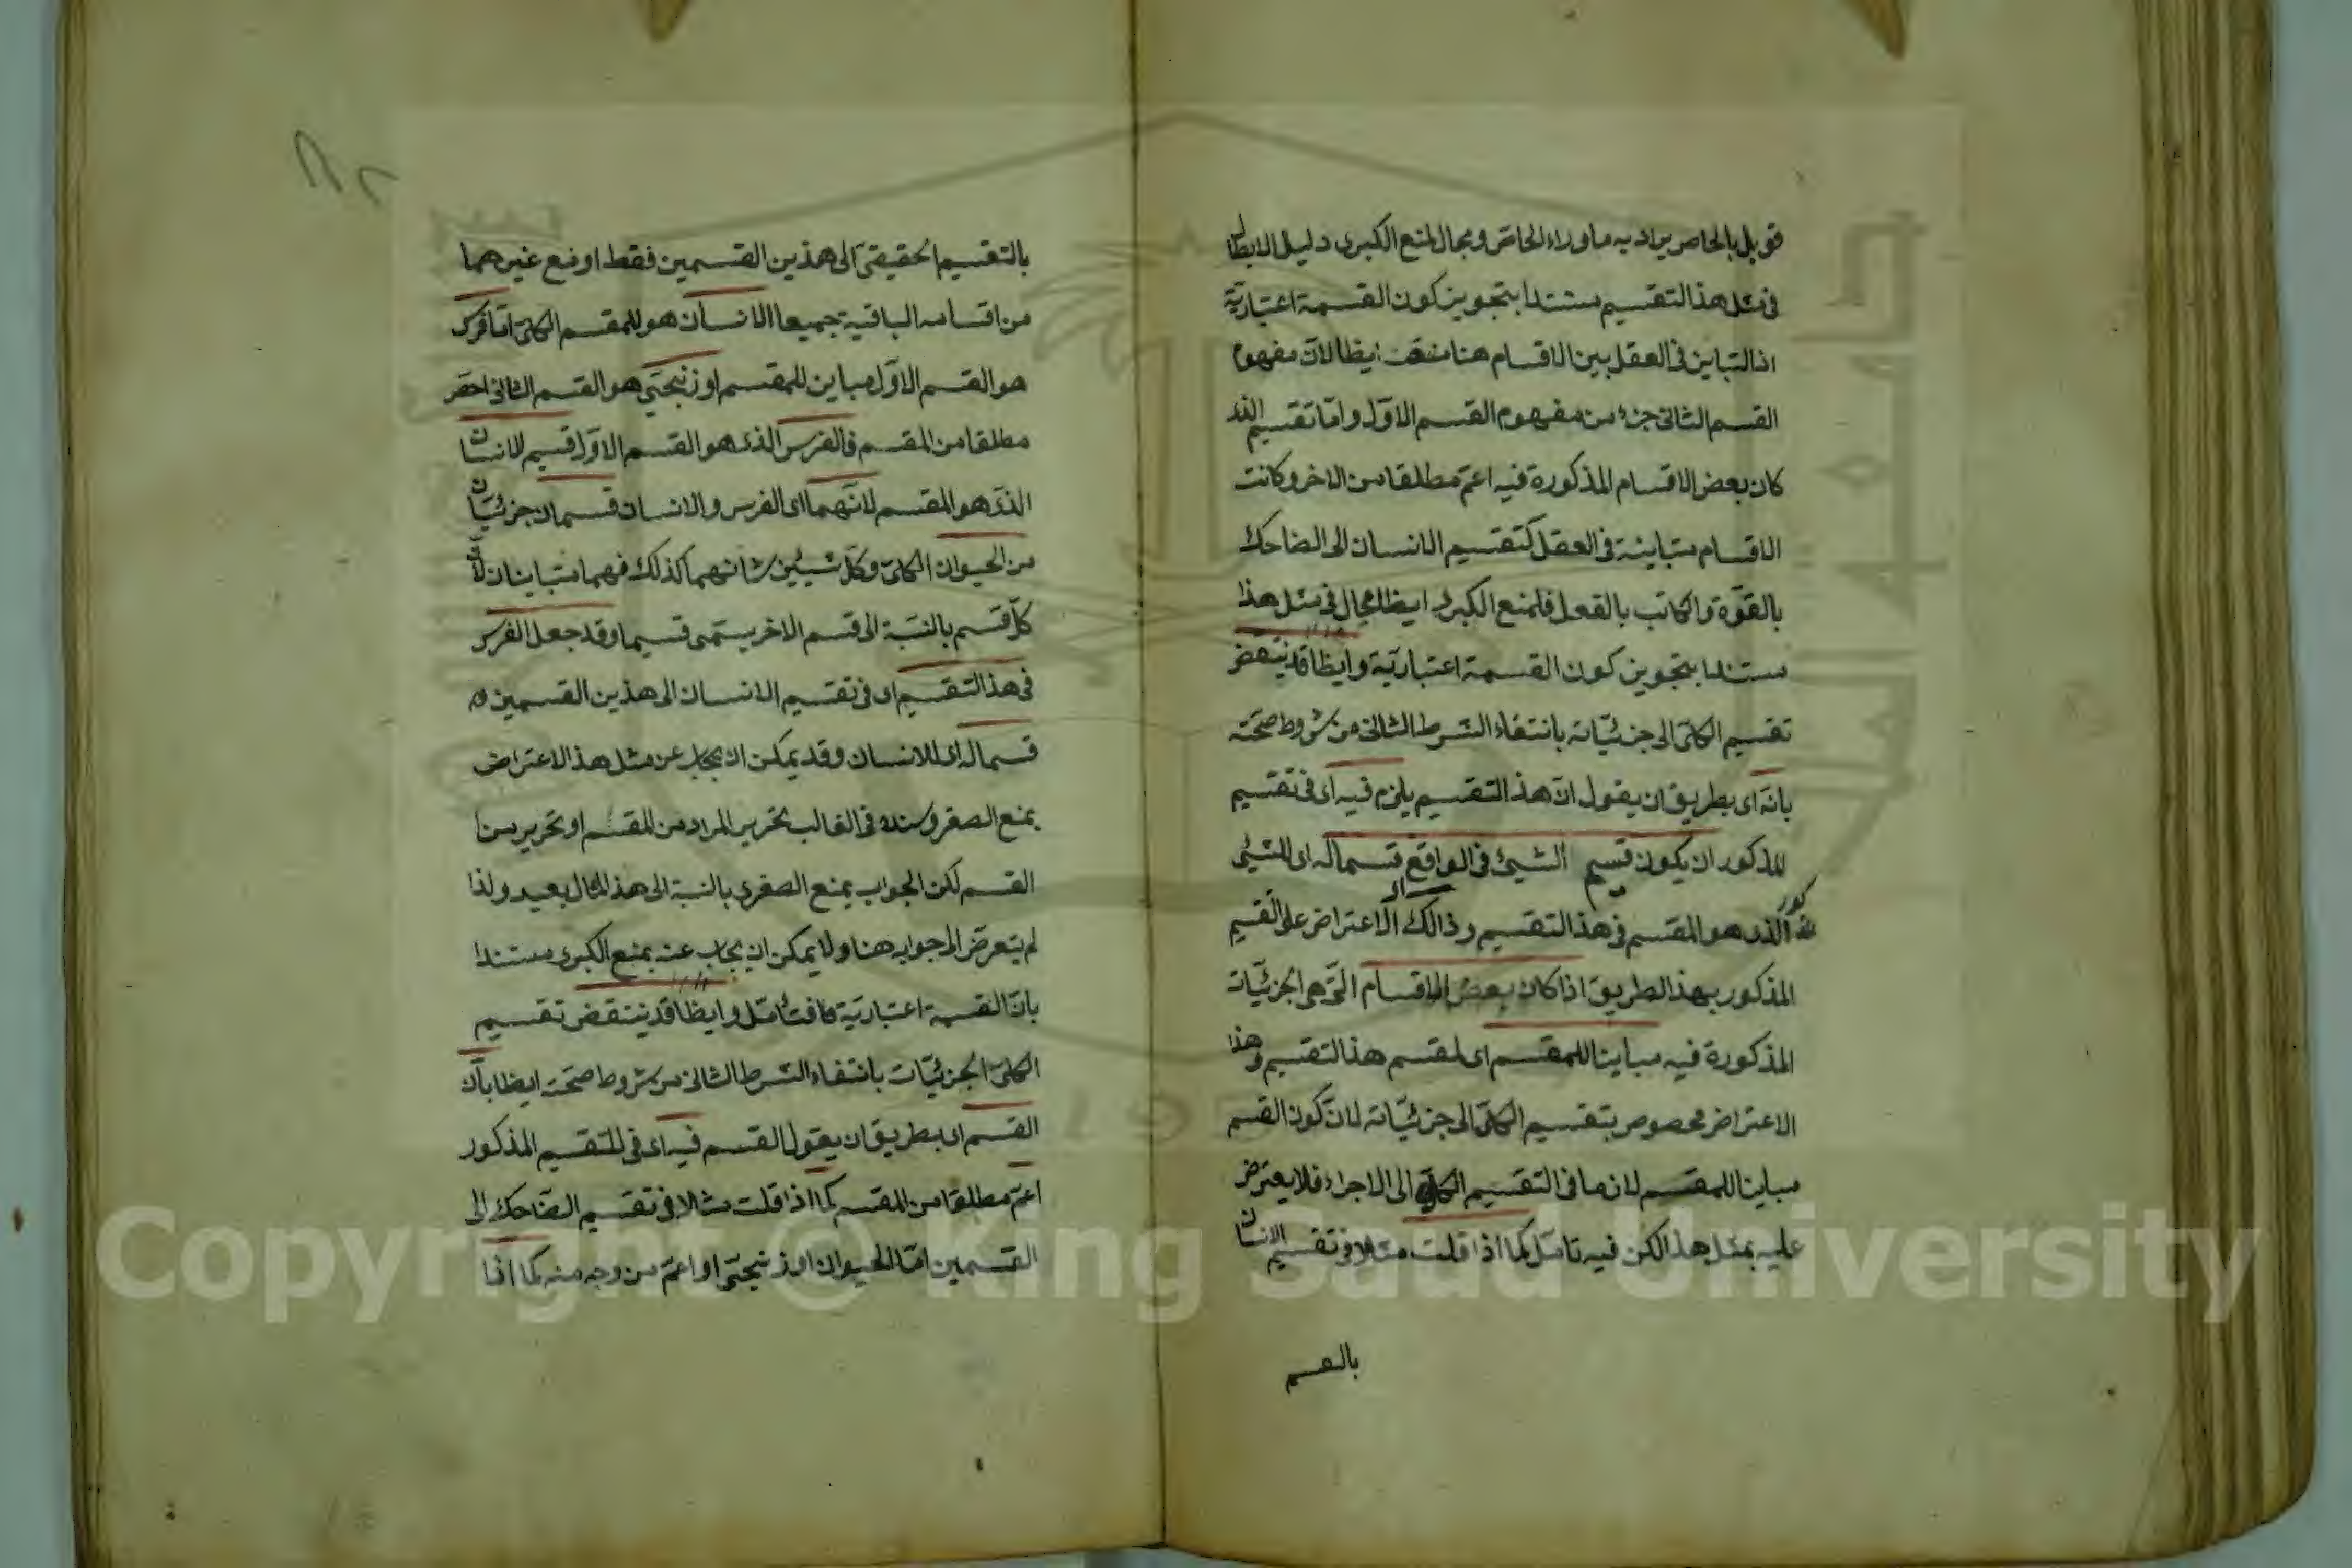 قوبل بالخاص يراد به ما وراء الخاص ومجال لمنع الكبرى دليل الابطال
فى مثل هذا التقسيم مستندا بتجويز كون القسمة اعتبارية
اذ التباين فى العقل بين الاقسام هنا ايظا لان مفهوم
القسم الثانى جزء من مفهوم القسم الاول واما تقسيم الذى
كان بعض الاقسام المذكورة فيه اعم مطلقا من الاخر وكانت
الاقسام متباينة فى العقل كتقسيم الانسان الى الضاحك
بالقوة والكاتب بالفعل فلمنع الكبرى ايظا مجال فى مثل هذا
مستندا بتجويز كون القسمة اعتبارية وايظا قد ينتقض
تقسيم الكلى الى جزئياته بانتفاء الشرط الثانى من شروط صحته
بانه اى بطريق ان يقول ان هذا التقسيم يلزم فيه اى فى تقسيم
المذكور ان يكون قسيم الشيئ فى الواقع قسما له اى للشيئ
الذى هو المقسم فى هذا التقسيم وذالك الاعتراض على التقسيم
المذكور بهذا الطريق اذا كان بعض الاقسام التى هى الجزئيات
المذكورة فيه مباينا للمقسم اى لمقسم هذا التقسيم وهذا
الاعتراض مخصوص بتقسيم الكلى الى جزئياته لان كون القسم
مباينا للمقسم لازما فى التقسيم الكل الى الاجزاء فلا يعترض
عليه بمثل هذا لكن فيه تامل كما اذا قلت مثلا فى تقسيم الانسان
بالتقسيم
بالتقسيم الحقيقى الى هذين القسمين فقط او مع غيرهما
من اقسامه الباقية جميعا الانسان هو المقسم الكلى اما فرس
هو القسم الاول مباين للمقسم او زنجى هو القسم الثانى اخص
مطلقا من المقسم فالفرس الذى هو القسم الاول قسيم للانسان
الذى هو المقسم لانهما اى الفرس والانسان قسمان جزئيان
من الحيوان الكلى وكل شيئين شانهما كذلك فهما متباينان لان
كل قسم بالنسبة الى قسم الاخر يسمى قسيما وقد جعل الفرس
فى هذا التقسيم اى فى تقسيم الانسان الى هذين القسمين
قسما له اى للانسان وقد يمكن ان يجاب عن مثل هذا الاعتراض
بمنع الصغرى وسنده فى الغالب تحرير المراد من المقسم او تحرير من
القسم لكن الجواب بمنع الصغرى بالنسبة الى هذا المثال بعيد ولذا
لم يتعرض الى جوابه هنا ولا يمكن ان يجاب عنه بمنع الكبرى مستندا
بان القسمة اعتبارية فتامل وايظا قد ينتقض تقسيم
الكلى الجزئيات بانتفاء الشرط الثانى من شروط صحته ايظا بان
القسم اى بطريق ان يقول القسم فيه اى فى التقسيم المذكور
اعم مطلقا من المقسم كما اذا قلت مثلا فى تقسيم الضاحك الى
القسمين اما الحيوان او زنجى او اعم من وجه منه كما اذا